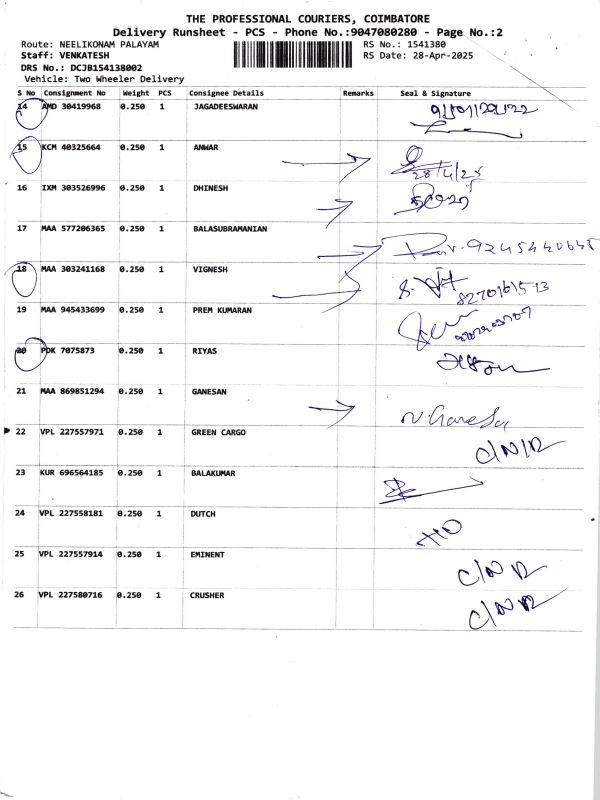 THE PROFESSIONAL COURIERS, COIMBATORE
Delivery Runsheet - PCS - Phone No.:9047080280 - Page No.:2
Route: NEELIKONAM PALAYAM RS No.: 1541380
Staff: VENKATESH RS Date: 28-Apr-2025
DRS No.: DCJB154138002
Vehicle: Two Wheeler Delivery
S No Consignment No Weight PCS Consignee Details Remarks Seal & Signature
14 AMD 30419968 0.250 1 JAGADEESWARAN
15 KCM 40325664 0.250 1 ANWAR
28/4/25
16 IXM 303526996 0.250 1 DHINESH
17 MAA 577206365 0.250 1 BALASUBRAMANIAN
18 MAA 303241168 0.250 1 VIGNESH
19 MAA 945433699 0.250 1 PREM KUMARAN
20 PDK 7075873 0.250 1 RIYAS
21 MAA 869851294 0.250 1 GANESAN
22 VPL 227557971 0.250 1 GREEN CARGO
C/N/R
23 KUR 696564185 0.250 1 BALAKUMAR
24 VPL 227558181 0.250 1 DUTCH
HO
25 VPL 227557914 0.250 1 EMINENT
C/N R
26 VPL 227580716 0.250 1 CRUSHER
C/N R